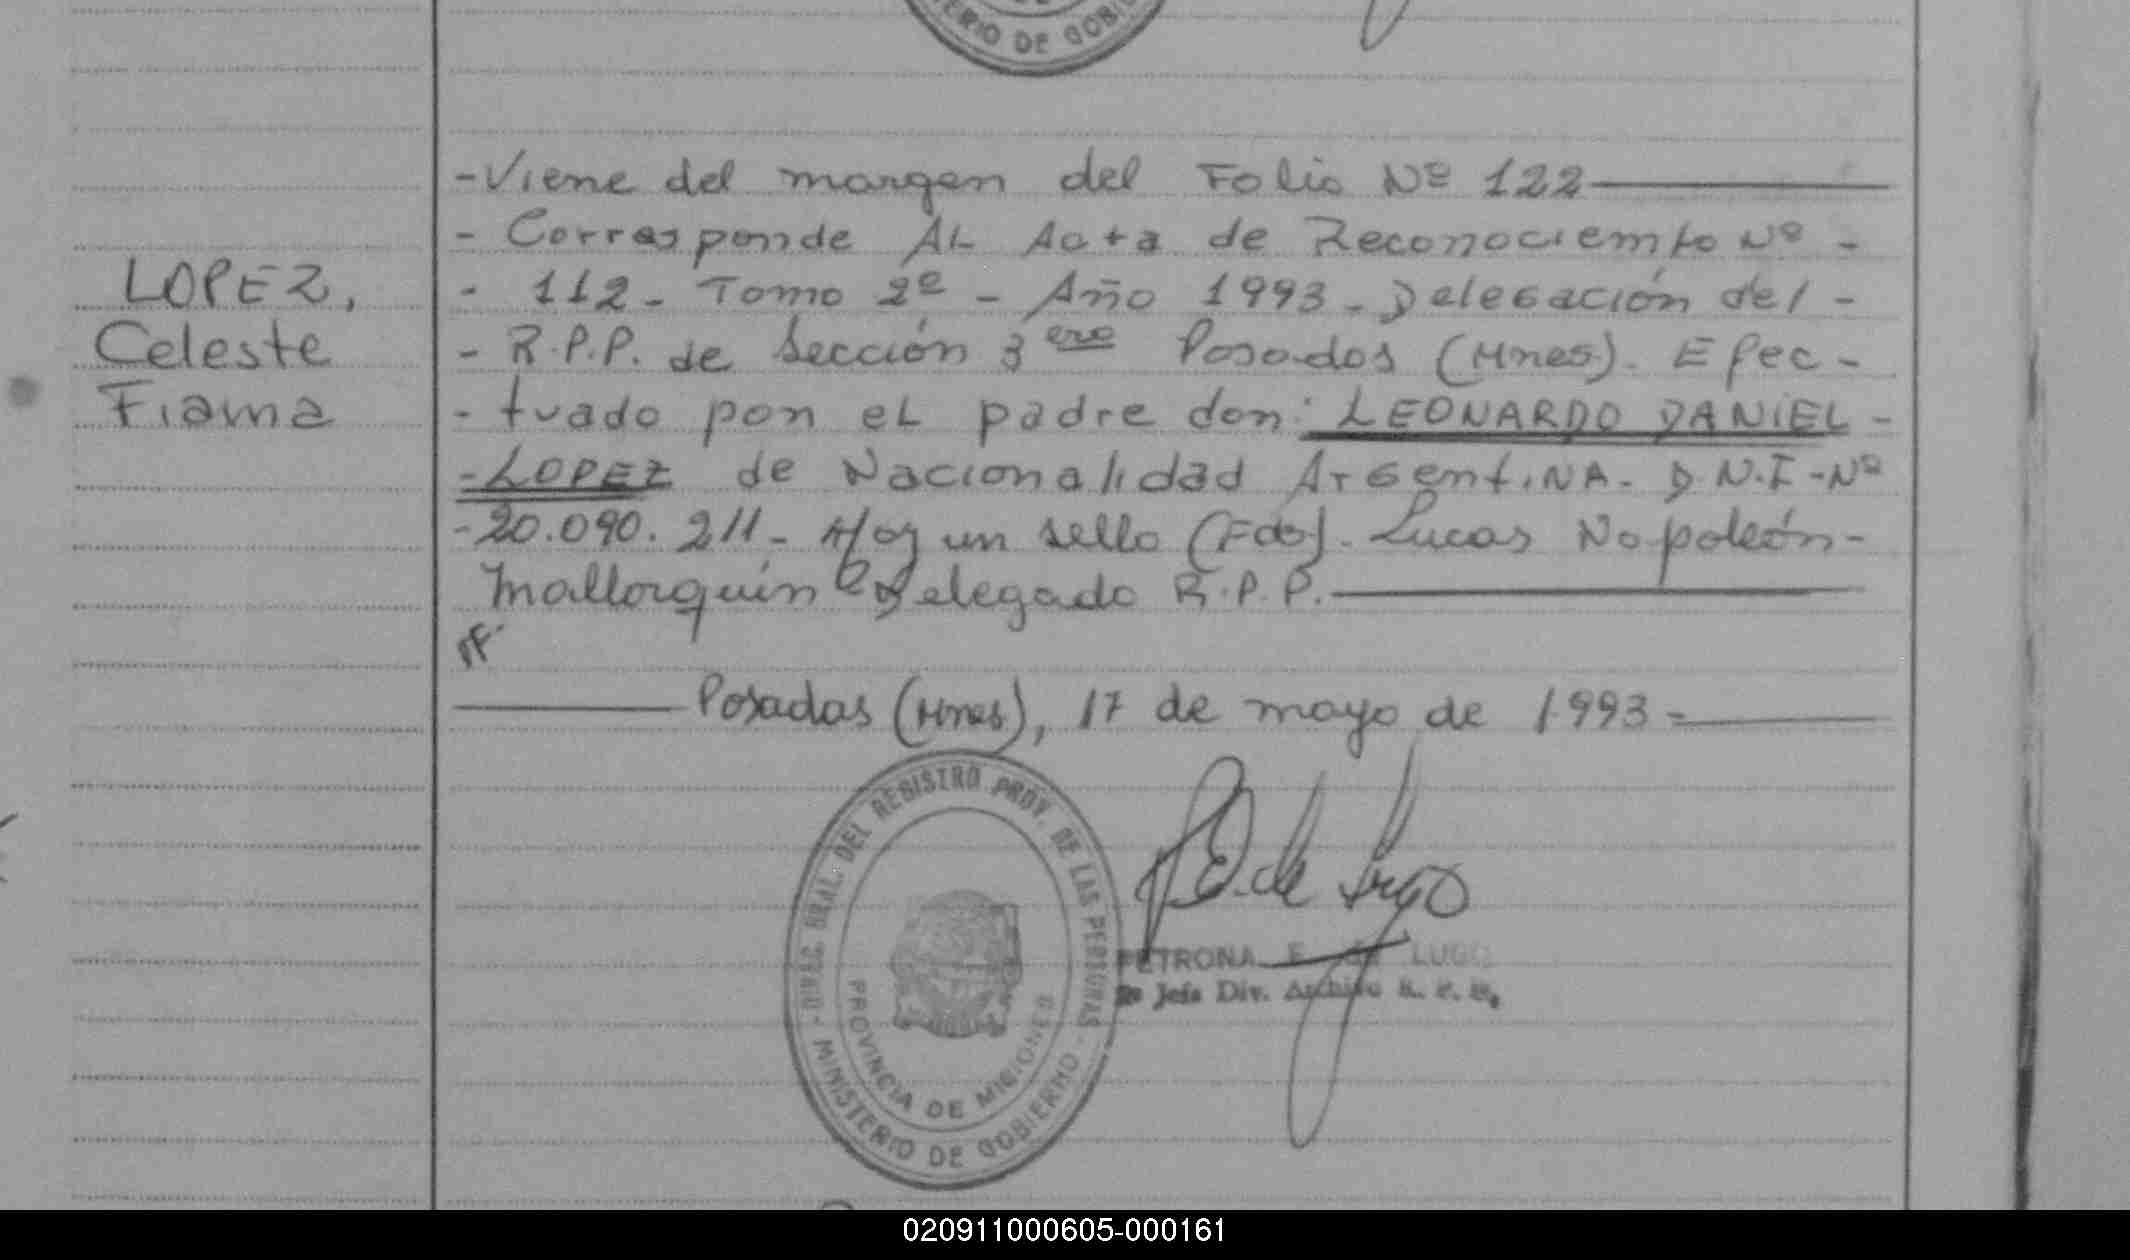 ERIO DE GOBI
-Viene del margen del Folio Nº 122
- Corresponde AL Acta de Reconociemto Nº -
LOPEZ,
Celeste
Fiama
- 112 - Tomo 2º - Año 1993 - Delegación del -
- R.P.P. de Sección 3era Posadas (Mnes). Efec -
- tuado por el padre don: LEONARDO DANIEL -
- LOPEZ de Nacionalidad Argentina - D.N.I - Nº
- 20.090.211 - Hoy un sello (Fdo). Lucas Napoleón -
Mallorquín Delegado R.P.P.
Posadas (Mnes), 17 de mayo de 1993 -
DIREC. GRAL. DEL REGISTRO PROV. DE LAS PERSONAS - MINISTERIO DE GOBIERNO -
PROVINCIA DE MISIONES
PETRONA E. de LUGO
Jefa Div. Archivo R. P. P.
020911000605-000161